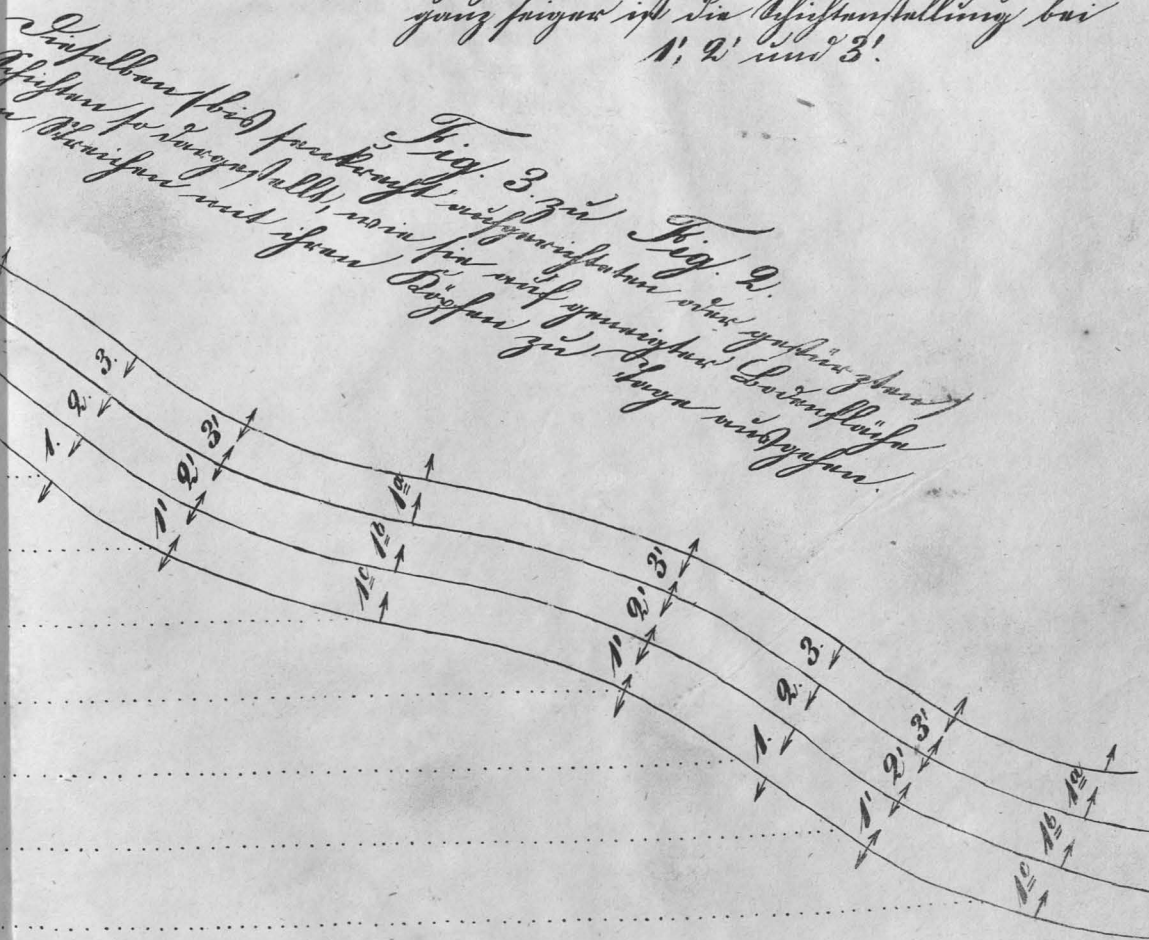 ganz seiger ist die Schichtenstellung bei
1', 2' und 3'.
Fig. 3 zu Fig. 2.
Dieselben (bis senkrecht aufgerichteten oder gestürzten)
Schichten so dargestellt, wie sie auf geneigter Bodenfläche
Streichen mit ihren Köpfen zu Tage ausgehen.
3.
2.
1.
3'
2'
1'
1a
1b
1c
3'
2'
1'
3.
2.
1.
3'
2'
1'
1a
1b
1c